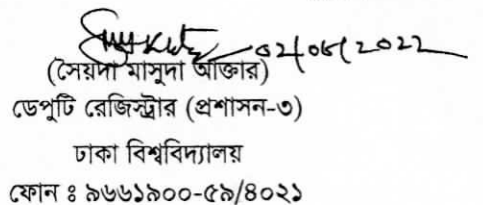 02/06/2022
(সৈয়দা মাসুদা আক্তার)
ডেপুটি রেজিস্ট্রার (প্রশাসন-৩)
ঢাকা বিশ্ববিদ্যালয়
ফোন ঃ ৯৬৬১৯০০-৫৯/৪০২১